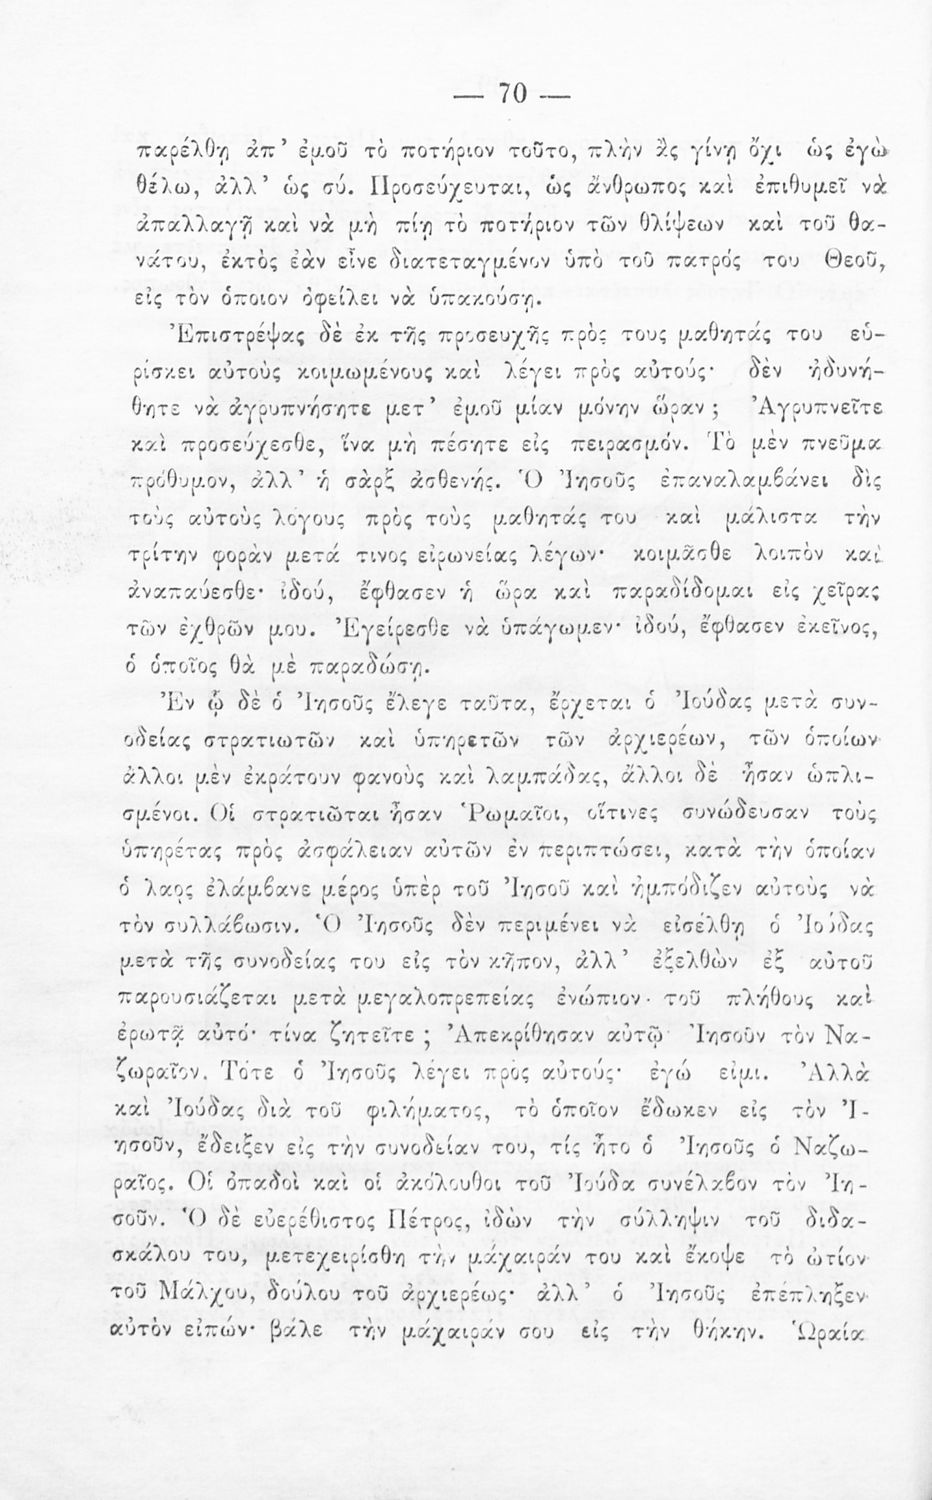 — 70 —
παρέλθῃ ἀπ’ ἐμοῦ τὸ ποτήριον τοῦτο, πλὴν ἂς γίνῃ ὄχι ὡς ἐγὼ
θέλω, ἀλλ’ ὡς σύ. Προσεύχευται, ὡς ἄνθρωπος καὶ ἐπιθυμεῖ νὰ
ἀπαλλαγῇ καὶ νὰ μὴ πίῃ τὸ ποτήριον τῶν θλίψεων καὶ τοῦ θα-
νάτου, ἐκτὸς ἐὰν εἶνε διατεταγμένον ὑπὸ τοῦ πατρός του Θεοῦ,
εἰς τὸν ὁποῖον ὀφείλει νὰ ὑπακούσῃ.
Ἐπιστρέψας δὲ ἐκ τῆς προσευχῆς πρὸς τους μαθητάς του εὑ-
ρίσκει αὐτοὺς κοιμωμένους καὶ λέγει πρὸς αὐτούς· δὲν ἠδυνή-
θητε νὰ ἀγρυπνήσητε μετ’ ἐμοῦ μίαν μόνην ὥραν ; Ἀγρυπνεῖτε
καὶ προσεύχεσθε, ἵνα μὴ πέσητε εἰς πειρασμόν. Τὸ μὲν πνεῦμα
πρόθυμον, ἀλλ’ ἡ σὰρξ ἀσθενής. Ὁ Ἰησοῦς ἐπαναλαμβάνει δὶς
τοὺς αὐτοὺς λόγους πρὸς τοὺς μαθητάς του καὶ μάλιστα τὴν
τρίτην φορὰν μετά τινος εἰρωνείας λέγων· κοιμᾶσθε λοιπὸν καὶ
ἀναπαύεσθε· ἰδού, ἔφθασεν ἡ ὥρα καὶ παραδίδομαι εἰς χεῖρας
τῶν ἐχθρῶν μου. Ἐγείρεσθε νὰ ὑπάγωμεν· ἰδού, ἔφθασεν ἐκεῖνος,
ὁ ὁποῖος θὰ μὲ παραδώσῃ.
Ἐν ᾧ δὲ ὁ Ἰησοῦς ἔλεγε ταῦτα, ἔρχεται ὁ Ἰούδας μετὰ συν-
οδείας στρατιωτῶν καὶ ὑπηρετῶν τῶν ἀρχιερέων, τῶν ὁποίων
ἄλλοι μὲν ἐκράτουν φανοὺς καὶ λαμπάδας, ἄλλοι δὲ ἦσαν ὡπλι-
σμένοι. Οἱ στρατιῶται ἦσαν Ῥωμαῖοι, οἵτινες συνώδευσαν τοὺς
ὑπηρέτας πρὸς ἀσφάλειαν αὐτῶν ἐν περιπτώσει, κατὰ τὴν ὁποίαν
ὁ λαος ἐλάμβανε μέρος ὑπὲρ τοῦ Ἰησοῦ καὶ ἠμπόδιζεν αὐτοὺς νὰ
τὸν συλλάβωσιν. Ὁ Ἰησοῦς δὲν περιμένει νὰ εἰσέλθῃ ὁ Ἰούδας
μετὰ τῆς συνοδείας του εἰς τὸν κῆπον, ἀλλ’ ἐξελθὼν ἐξ αὐτοῦ
παρουσιάζεται μετὰ μεγαλοπρεπείας ἐνώπιον τοῦ πλήθους καὶ
ἐρωτᾷ αὐτό· τίνα ζητεῖτε ; Ἀπεκρίθησαν αὐτῷ· Ἰησοῦν τὸν Να-
ζωραῖον. Τότε ὁ Ἰησοῦς λέγει πρὸς αὐτούς· ἐγώ εἰμι. Ἀλλὰ
καὶ Ἰούδας διὰ τοῦ φιλήματος, τὸ ὁποῖον ἔδωκεν εἰς τὸν Ἰ-
ησοῦν, ἔδειξεν εἰς τὴν συνοδείαν του, τίς ἦτο ὁ Ἰησοῦς ὁ Ναζω-
ραῖος. Οἱ ὀπαδοὶ καὶ οἱ ἀκόλουθοι τοῦ Ἰούδα συνέλαβον τὸν Ἰη-
σοῦν. Ὁ δὲ εὐερέθιστος Πέτρος, ἰδὼν τὴν σύλληψιν τοῦ διδα-
σκάλου του, μετεχειρίσθη τὴν μάχαιράν του καὶ ἔκοψε τὸ ὠτίον
τοῦ Μάλχου, δούλου τοῦ ἀρχιερέως· ἀλλ’ ὁ Ἰησοῦς ἐπέπληξεν
αὐτὸν εἰπών· βάλε τὴν μάχαιράν σου εἰς τὴν θήκην. Ὡραία